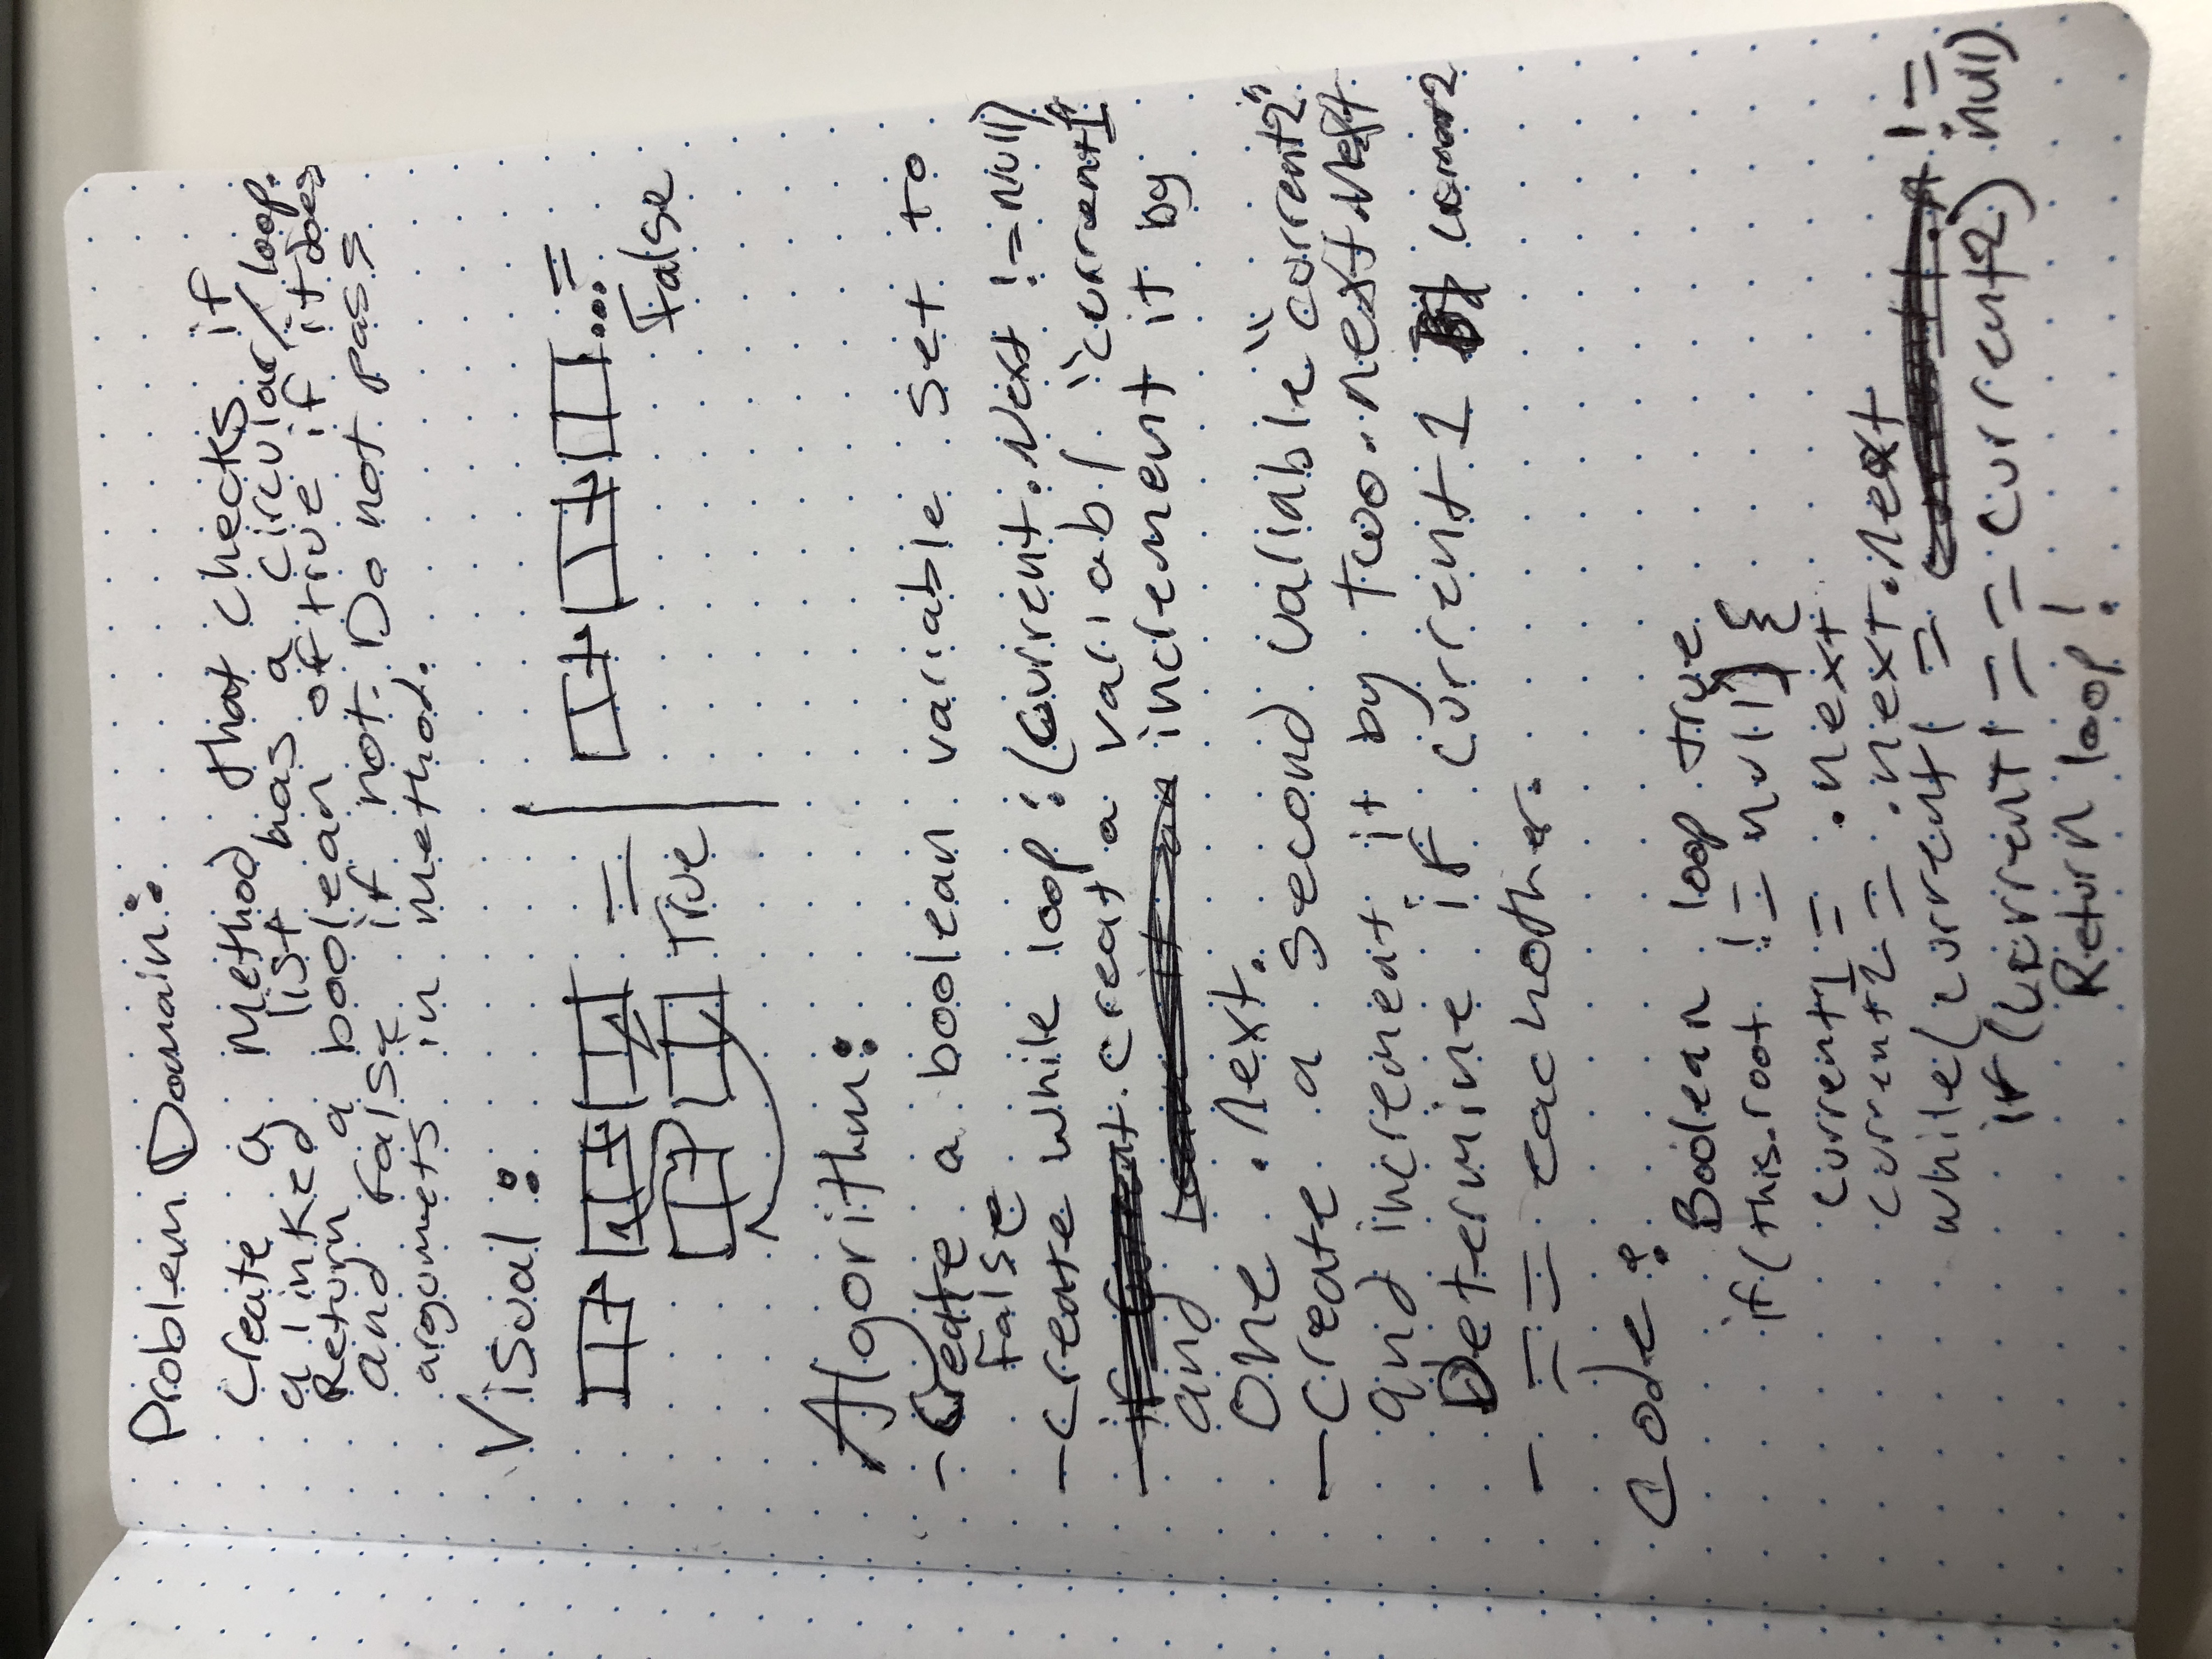 Problem Domain:
Create a Method that checks if
a linked list has a circular/loop.
Return a boolean of true if it does
and false if not. Do not pass
argumets in method.
Visual:
= ...=
True False
Algorithm:
- Create a boolean variable set to
False
- Create while loop: (Current.Next != null)
creat a variabl "current1"
and increment it by
one .next.
- Create a second variable "current2"
and increment it by two .next.Next
Determine if current1 current2
- == eachother.
Code:
Boolean loop true
if(this.root != null) {
current1 = .next
current2 = .next.next
while(current1 = !=
null)
if(current1 == current2)
Return loop!